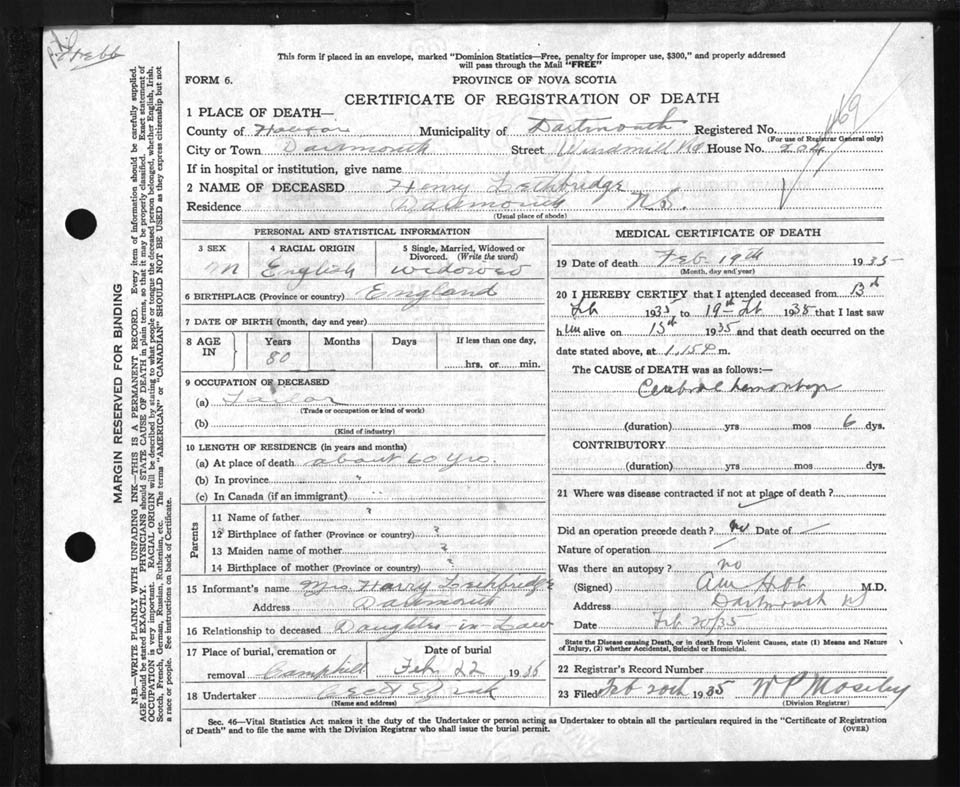 This form if placed in an envelope, marked "Dominion Statistics—Free, penalty for improper use, $300," and properly addressed
will pass through the Mail "FREE"
FORM 6.
PROVINCE OF NOVA SCOTIA
CERTIFICATE OF REGISTRATION OF DEATH
1 PLACE OF DEATH—
County of Halifax Municipality of Dartmouth Registered No. 169
(For use of Registrar General only)
City or Town Dartmouth Street Windmill Rd House No. 204
If in hospital or institution, give name
2 NAME OF DECEASED Henry Lethbridge
Residence Dartmouth N.S.
(Usual place of abode)
PERSONAL AND STATISTICAL INFORMATION
3 SEX 4 RACIAL ORIGIN 5 Single, Married, Widowed or
Divorced. (Write the word)
M English Widowed
6 BIRTHPLACE (Province or country) England
7 DATE OF BIRTH (month, day and year)
8 AGE IN Years Months Days If less than one day,
80 hrs. or min.
9 OCCUPATION OF DECEASED
(a) Tailor
(Trade or occupation or kind of work)
(b)
(Kind of industry)
10 LENGTH OF RESIDENCE (in years and months)
(a) At place of death about 60 yrs.
(b) In province "
(c) In Canada (if an immigrant) "
Parents
11 Name of father ?
12 Birthplace of father (Province or country) ?
13 Maiden name of mother ?
14 Birthplace of mother (Province or country) ?
15 Informant's name Mrs Harry Lethbridge
Address Dartmouth
16 Relationship to deceased Daughter-in-Law
17 Place of burial, cremation or Date of burial
removal Camphill Feb 22 1935
18 Undertaker
(Name and address)
MEDICAL CERTIFICATE OF DEATH
19 Date of death Feb 19th 1935
(Month, day and year)
20 I HEREBY CERTIFY that I attended deceased from 13th
Feb 1935, to 19th Feb 1935 that I last saw
him alive on 15th 1935 and that death occurred on
date stated above, at 1.15 P m.
The CAUSE of DEATH was as follows:—
Cerebral hemorrhage
(duration) yrs mos 6 dys.
CONTRIBUTORY
(duration) yrs mos dys.
21 Where was disease contracted if not at place of death?
Did an operation precede death? no Date of —
Nature of operation
Was there an autopsy? no
(Signed) M.D.
Address Dartmouth NS
Date Feb 20/35
State the Disease causing Death, or in death from Violent Causes, state (1) Means and Nature
of Injury, (2) whether Accidental, Suicidal or Homicidal.
22 Registrar's Record Number
23 Filed Feb 20th 1935 W P Moseley
(Division Registrar)
Sec. 46—Vital Statistics Act makes it the duty of the Undertaker or person acting as Undertaker to obtain all the particulars required in the "Certificate of Registration
of Death" and to file the same with the Division Registrar who shall issue the burial permit. (OVER)
MARGIN RESERVED FOR BINDING
N.B.—WRITE PLAINLY WITH UNFADING INK—THIS IS A PERMANENT RECORD. Every item of information should be carefully supplied.
AGE should be stated EXACTLY. PHYSICIANS should STATE CAUSE OF DEATH in plain terms, so that it may be properly classified. Exact statement of
OCCUPATION is very important. RACIAL ORIGIN will be described by stating to what people or tongue the deceased person belonged, whether English, Irish,
Scotch, French, German, Russian, Ruthenian, etc. The terms "AMERICAN" or "CANADIAN" SHOULD NOT BE USED as they express citizenship but not
a race or people. See instructions on back of Certificate.